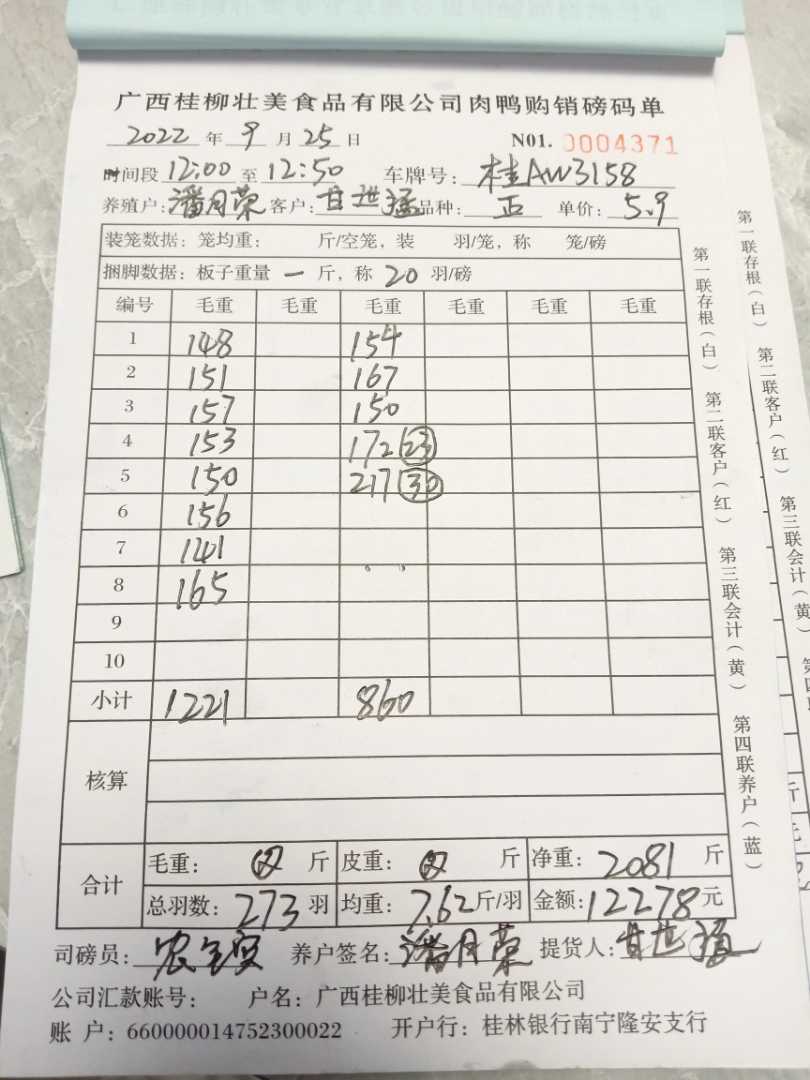 广西桂柳壮美食品有限公司肉鸭购销磅码单
2022年9月25日 N01. 0004371
时间段12:00至12:50 车牌号:桂AW3158
养殖户:潘月荣 客户:甘世猛 品种:正 单价:5.9
装笼数据:笼均重: 斤/空笼,装 羽/笼,称 笼/磅
捆脚数据:板子重量 一 斤,称 20 羽/磅
编号 毛重 毛重 毛重 毛重 毛重 毛重
1 148 154
2 151 167
3 157 150
4 153 172 23
5 150 217 30
6 156
7 141
8 165
9
10
小计 1221 860
核算
合计
毛重: 斤 皮重: 斤 净重:2081斤
总羽数:273羽 均重:7.62斤/羽 金额:12278元
司磅员: 养户签名:潘月荣 提货人:甘世猛
公司汇款账号: 户名:广西桂柳壮美食品有限公司
账 户:660000014752300022 开户行:桂林银行南宁隆安支行
第一联存根(白) 第二联客户(红) 第三联会计(黄) 第四联养户(蓝)
第一联存根(白) 第二联客户(红) 第三联会计(黄)